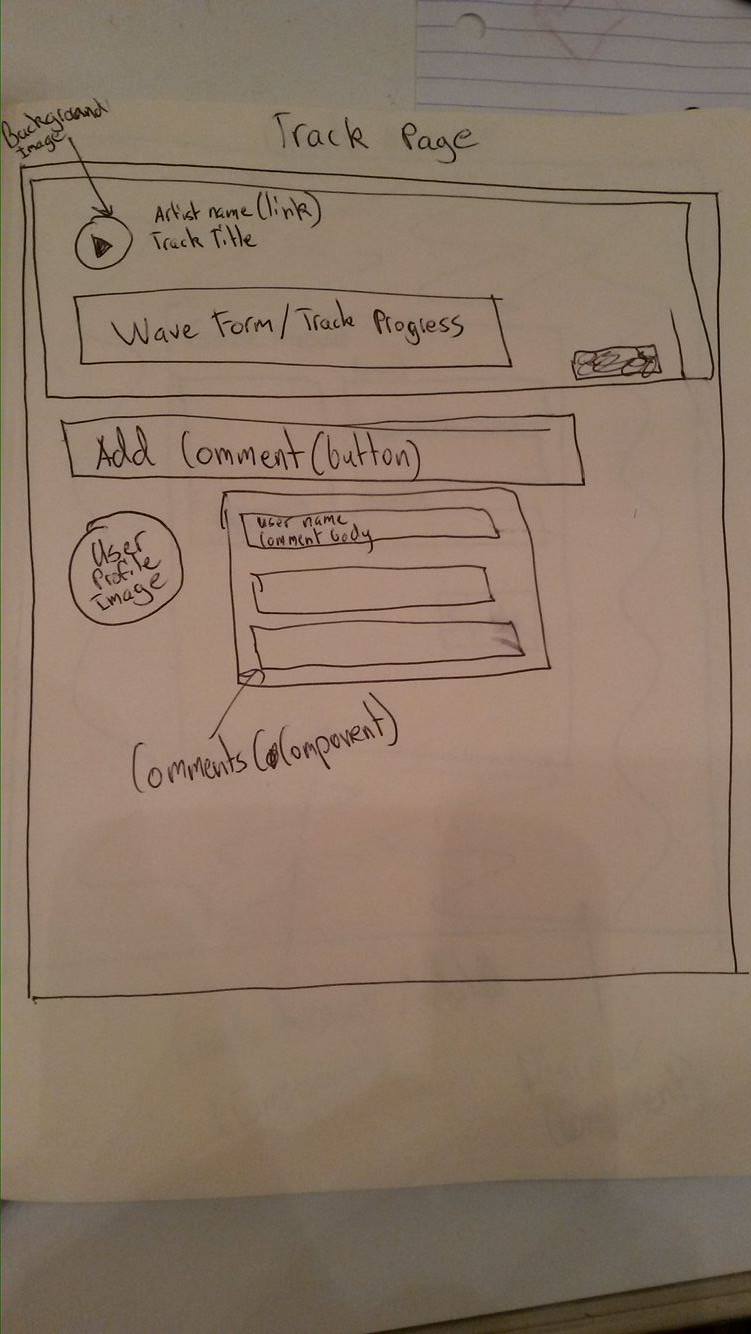 Track Page
Background
Image
Artist name (link)
Track Title
Wave Form/Track Progress
Add Comment (button)
User
Profile
Image
user name
Comment body
Comments (Component)